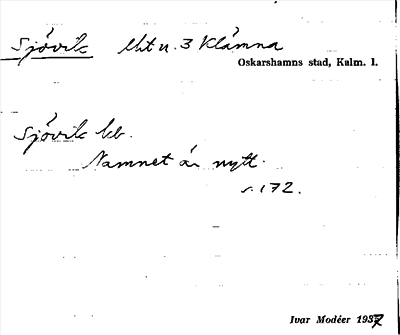 Sjövik lht u. 3 Klämna
Oskarshamns stad, Kalm. l.
Sjövik lb.
Namnet är nytt.
s. 172.
Ivar Modéer 1937